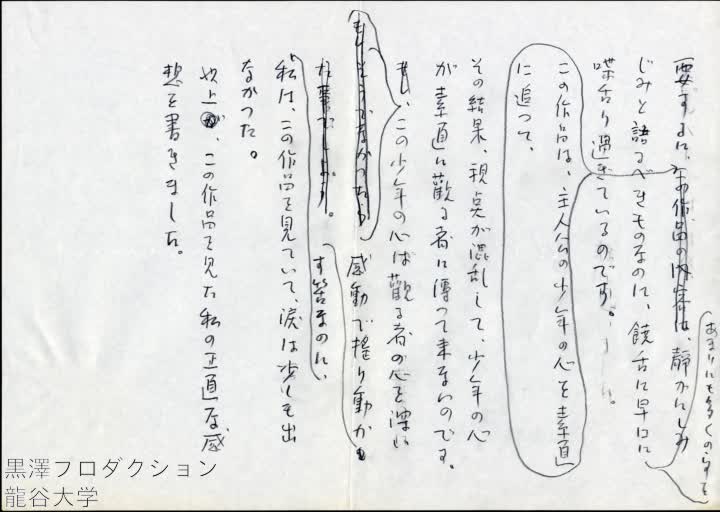 あまりにも多くのものを
要するに、この作品の内容は、静かにしみ
じみと語るべきものなのに、饒舌に早口に
喋舌り過ぎているのです。
この作品は、主人公の少年の心を素直
に追って、
その結果、視点が混乱して、少年の心
が素直に観る者に傳って来ないのです。
この少年の心は観る者の心を深い
もしそうでなかったら
感動で揺り動かす
筈なのに、
私は、この作品を見ていて、涙は少しも出
なかった。
以上が、この作品を見た私の正直な感
想を書きました。
黒澤プロダクション
龍谷大学